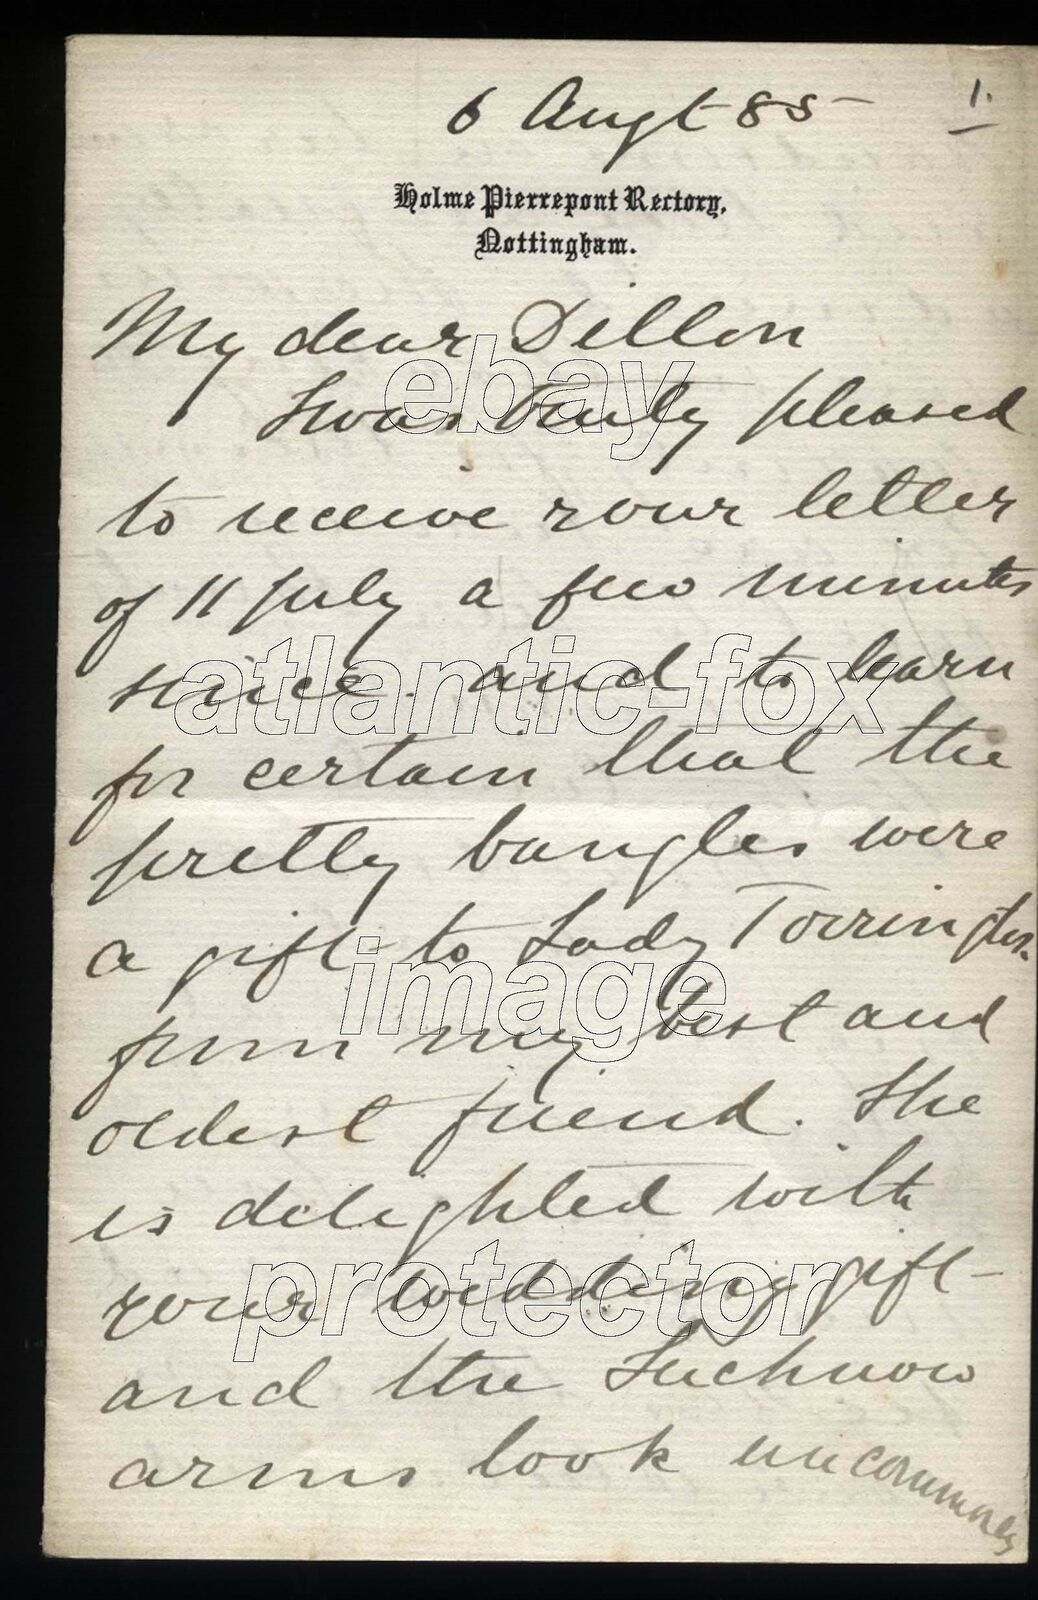 6 Augt 85
1.
Holme Pierrepont Rectory,
Nottingham.
My dear Dillon
I was truly pleased
to receive your letter
of 11 July a few minutes
since. and to learn
for certain that the
pretty bangles were
a gift to Lady Torrington
from my best and
oldest friend. She
is delighted with
your wedding gift -
and the Lucknow
arms look uncommonly
ebay
atlantic-fox
image
protector